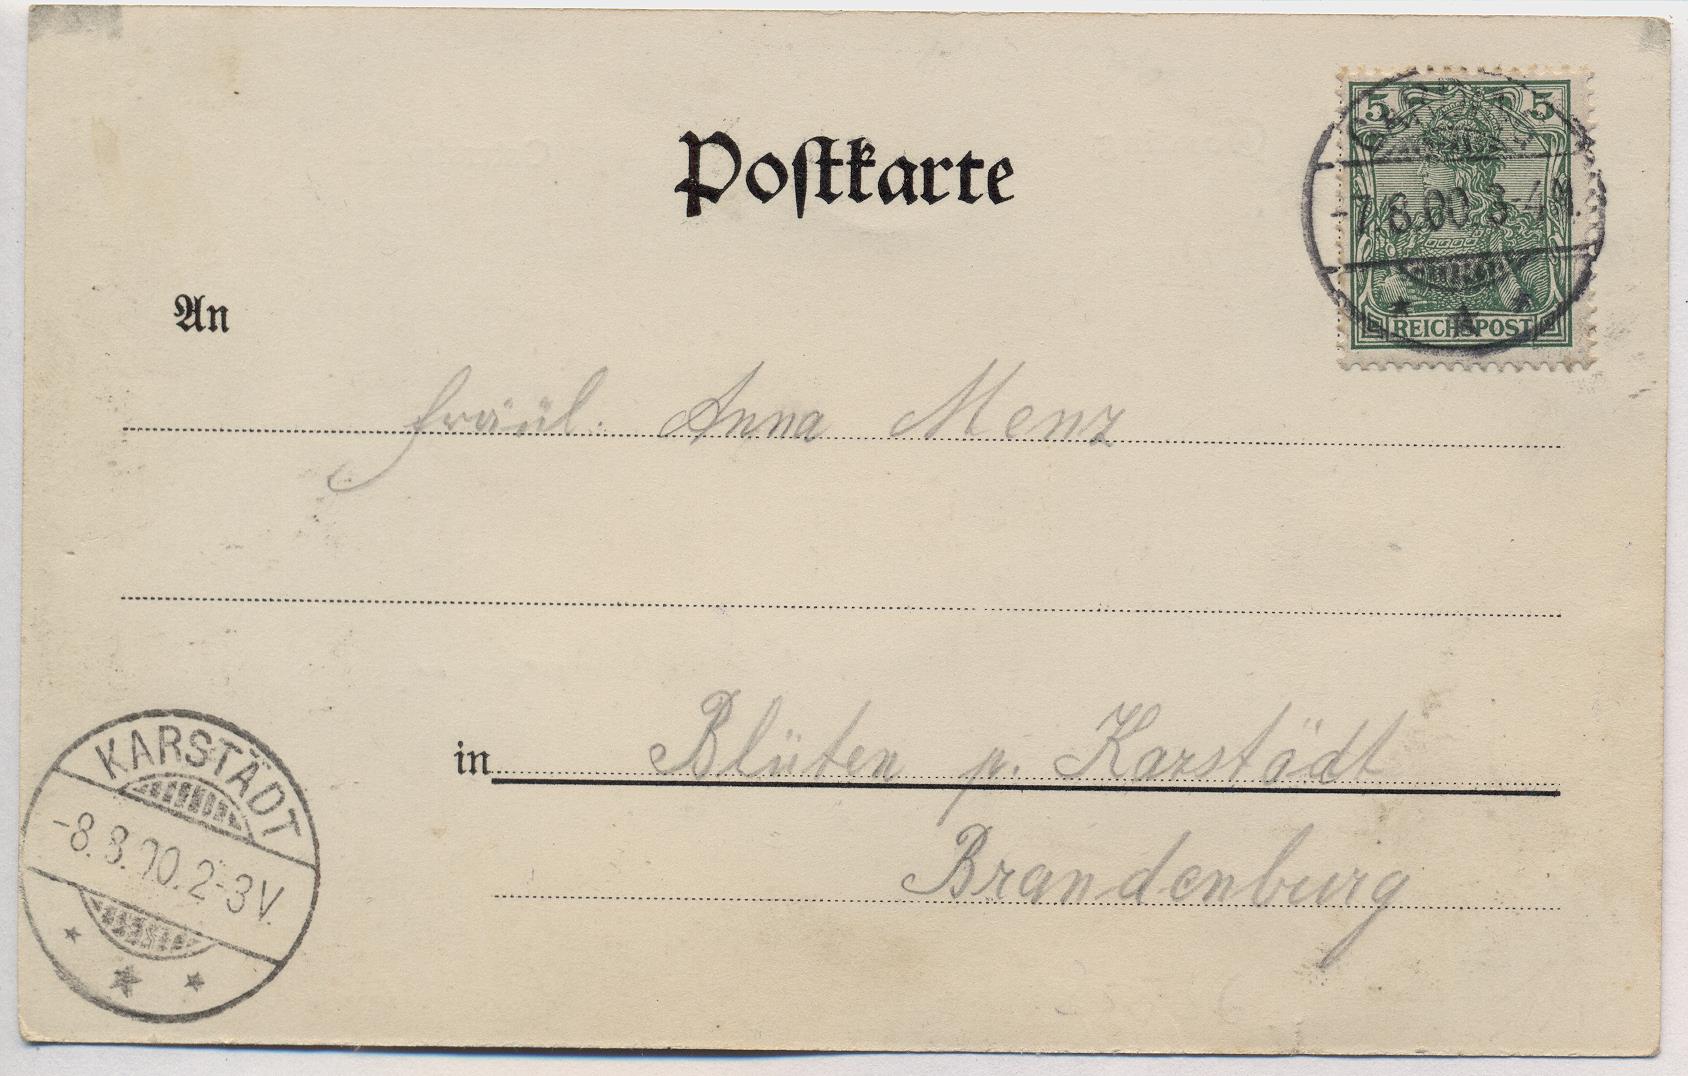 Postkarte
5 5
REICHSPOST
An
Fräul. Anna Menz
in Blüten p. Karstädt
Brandenburg
KARSTÄDT
-8.8.00.2-3V.